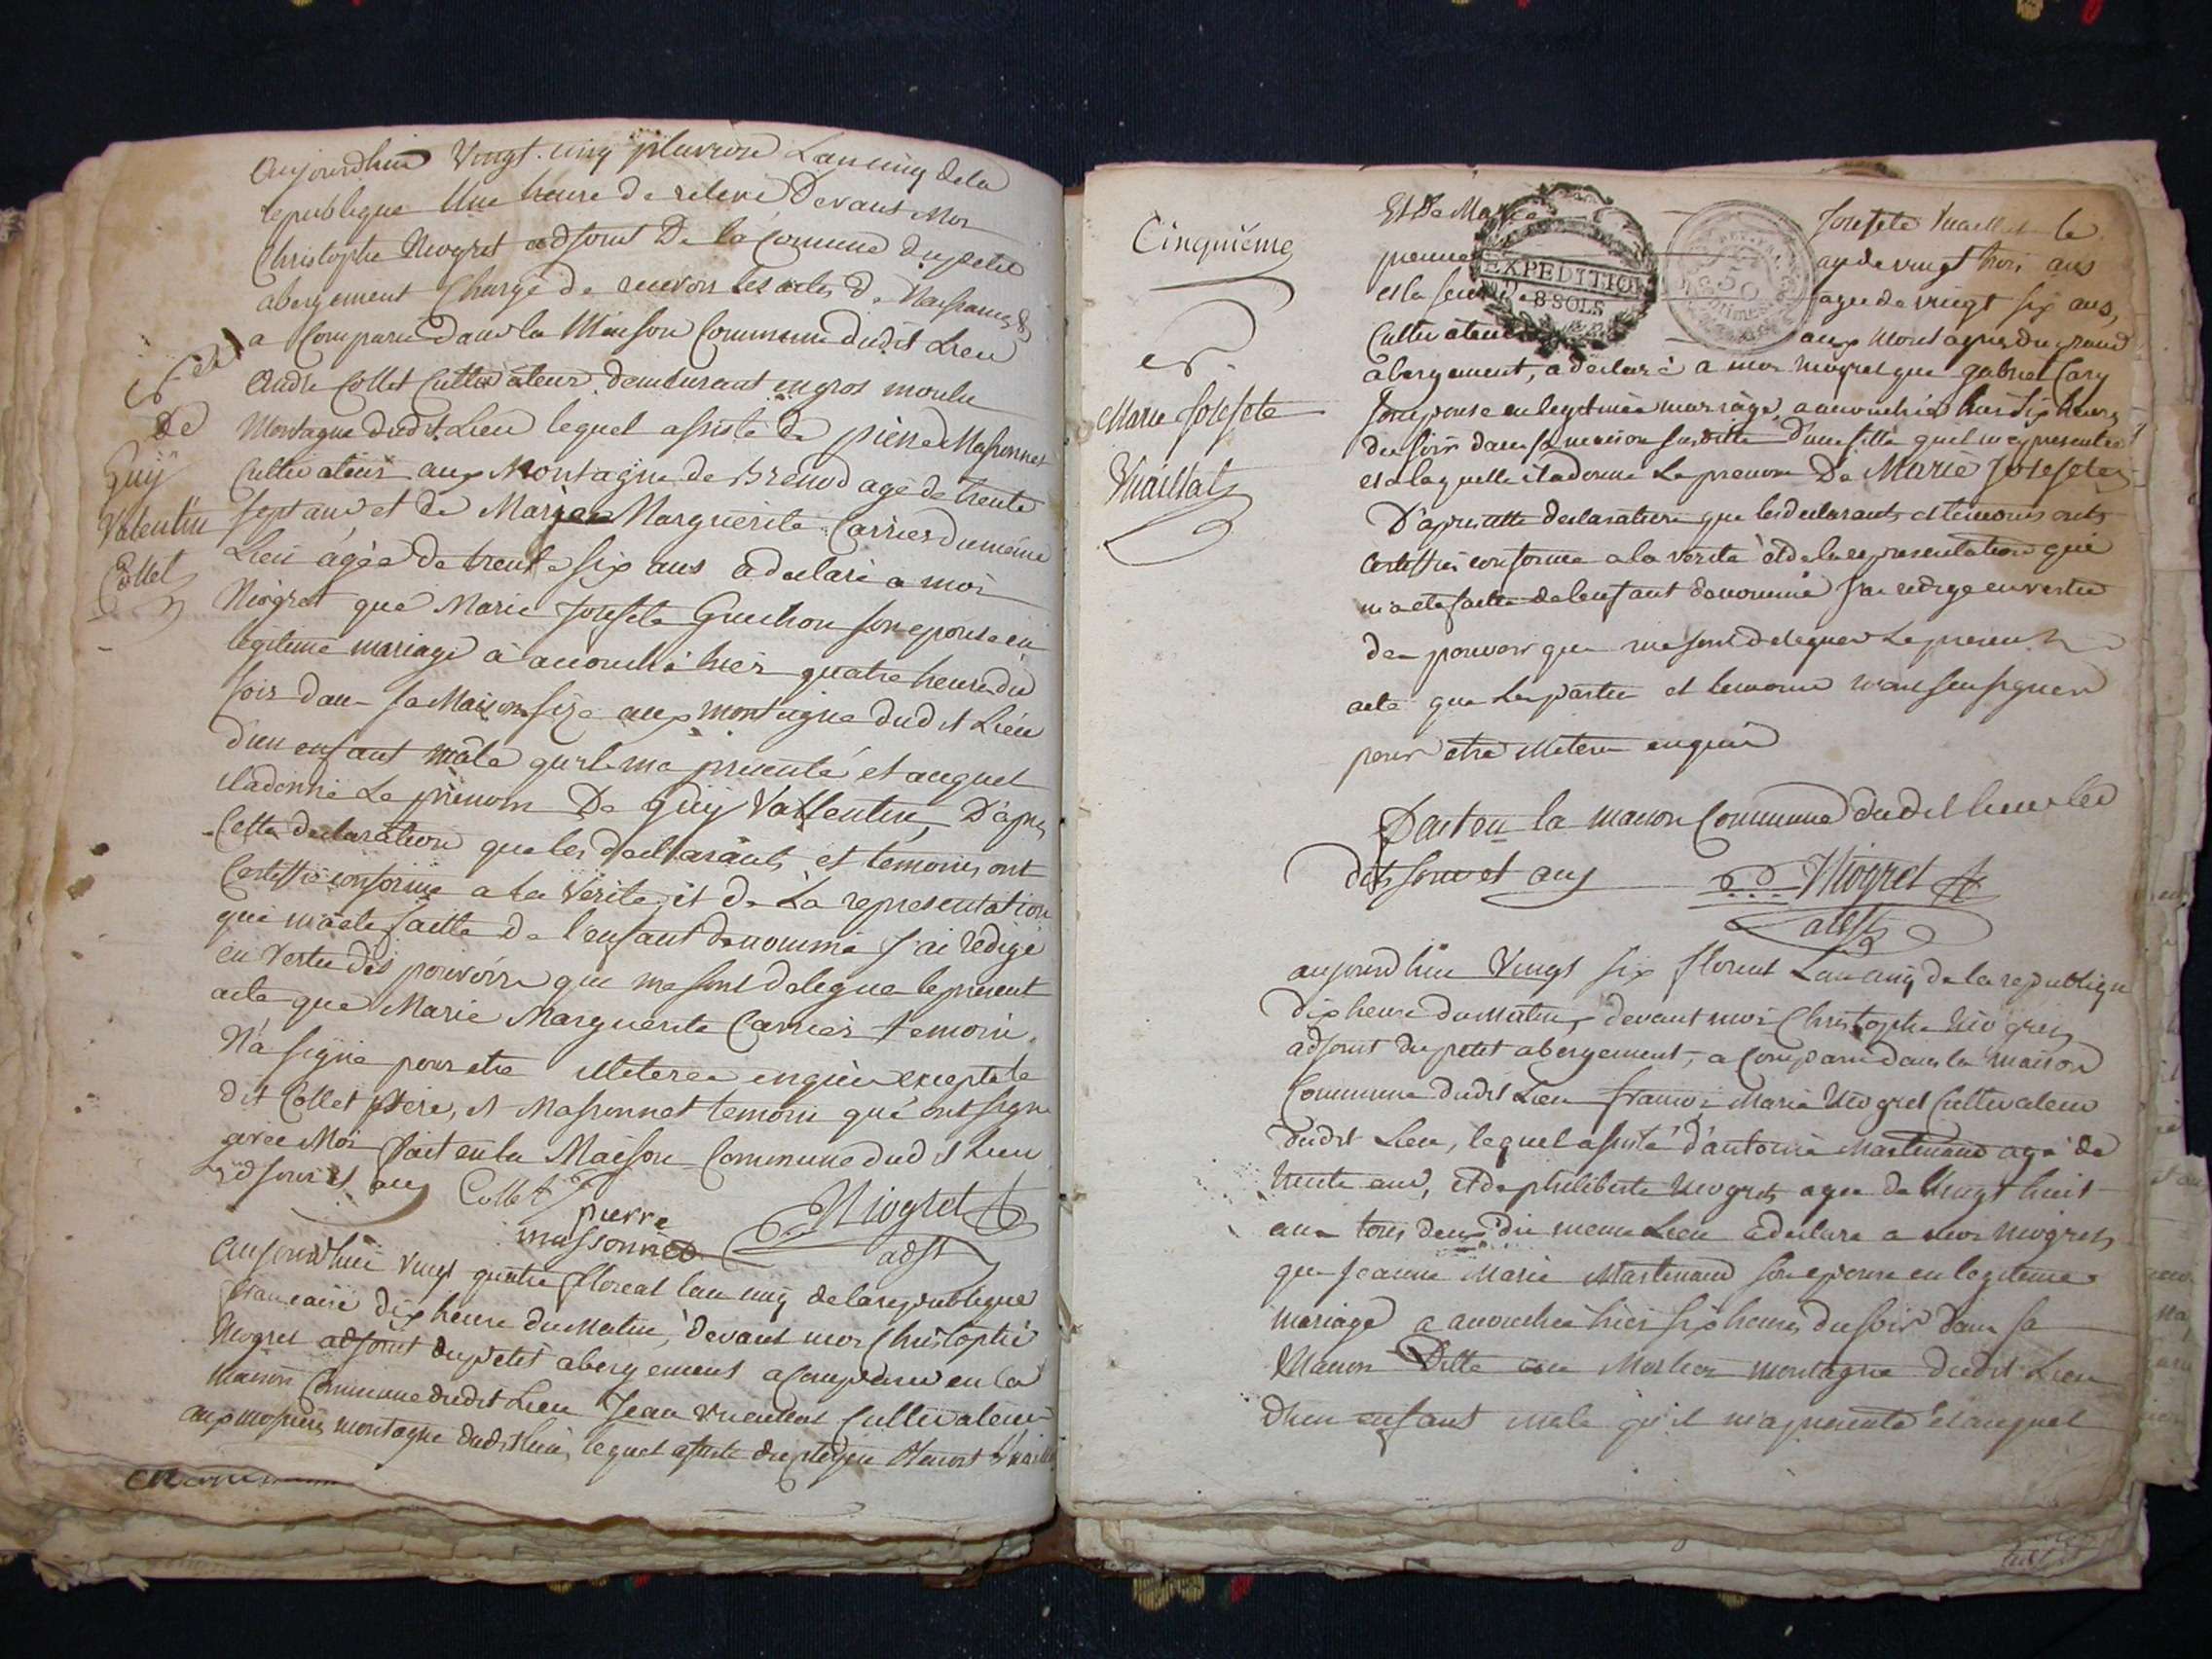 Aujourdhui Vingt cinq pluviose Lan cinq dela
republique Une heure de relevé Devant Moi
Christophe Niogret adjoint De la Comune du petit
abergement Chargé de recevoir les actes de Naissances
a Comparu dans la Maison Commune dudit Lieu
André Collet Cultivateur demeurant en gros moulu
Montagne dudit Lieu lequel assisté de pierre Massonnet
Cultivateur aux Montagne de Brenod agé de trente
sept ans et de Marie Marguerite Carrier du même
Lieu ágée de trente six ans a declaré a moi
Niogret que Marie Josefete Guichon son epouse en
legitime mariage à accouché hier quatre heure du
soir dans sa Maison size aux montagne dudit Liéu
d'un enfant mâle qu'il ma presenté et auquel
il a donné Le prénom De Guÿ Vallentin, D'apres
Cette declaration que les declarants et temoins ont
Certiffié conforme a la Verité et de La representation
qui m'a été faitte De l'enfant denommé J'ai rédigé
en Vertu des pouvoirs que me sont delegué le present
acte que Marie Marguerite Carrier temoin
N'a signé pour etre illeteree enquis excepté le
dit Collet père, et Massonnet temoin qui ont signé
avec Moi fait en la Maison Commune dudit Lieu
jour et an
Collet
pierre
massonnet
Niogret
adjt
De
Guÿ
Valentin
Collet
Aujourdhui vingt quatre floreal lan cinq de la republique
francaise dix heure du Matin, devant moi Christophe
Niogret adjoint du petit abergement a Comparu en la
maison Commune dudit Lieu Jean Cultivateur
aux montagne dudit lieu, lequel assisté du citoyen
Cinquiéme
Marie Josefete
Vuaillat
Et De Marie Josefete Vuaillat le
premier agé de vingt trois ans
et la seconde agee de vingt six ans,
Cultivateur aux Montagnes du grand
abergement, a declaré a moi niogret que gabriel Cary
son epouse en legitimée mariàge, a accouchée hier six heures
du soir dans sa maison susditte D'une fille quil m'a presentée
et a laquelle il a donné Le prenom De Marie Josefete
D'apres cette declaration que les declarants et temoins ont
certiffié conforme a la verité et de la representation qui
m'a été faitte de lenfant denommé J'ai redigé en vertu
des pouvoirs que me sont delegués Le present
acte que Les parties et temoins n'ont seu signer
pour etre illeteré enquis
Fait en la maison Commune dudit lieu les
dits jour et an
Niogret
adjt
EXPEDITION
8 SOLS
50
Centimes
aujourdhui Vingt six floreal Lan cinq de la republique
dix heure du Matin, devant moi Christophe Niogret
adjoint du petit abergement, a Comparu dans la maison
Commune dudit Lieu francois Marie Niogret Cultivateur
dudit Lieu, lequel assisté d'antoine Martinand agé de
trente ans, et de philiberte Niogret agee de Vingt huit
ans tous deux du meme Lieu a declaré a moi Niogret
que Jeanne Marie Martinand son epouse en legitime
mariage a accouchée hier six heures du soir dans sa
Maison Ditte montagne dudit Lieu
d'un enfant male qu'il m'a presenté et auquel